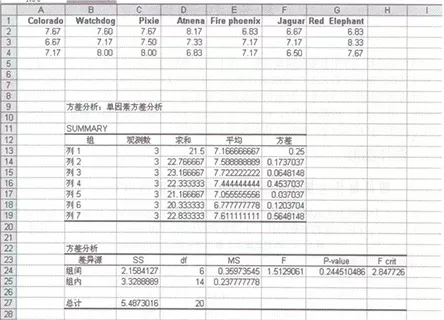 A B C D E F G H I
1 Colorado Watchdog Pixie Atnena Fire phoenix Jaguar Red Elephant
2 7.67 7.60 7.67 8.17 6.83 6.67 6.83
3 6.67 7.17 7.50 7.33 7.17 7.17 8.33
4 7.17 8.00 8.00 6.83 7.17 6.50 7.67
5
6
7
8
9 方差分析：单因素方差分析
10
11 SUMMARY
12 组 观测数 求和 平均 方差
13 列 1 3 21.5 7.166666667 0.25
14 列 2 3 22.766667 7.588888889 0.1737037
15 列 3 3 23.166667 7.722222222 0.0648148
16 列 4 3 22.333333 7.444444444 0.4537037
17 列 5 3 21.166667 7.055555556 0.037037
18 列 6 3 20.333333 6.777777778 0.1203704
19 列 7 3 22.833333 7.611111111 0.5648148
20
21
22 方差分析
23 差异源 SS df MS F P-value F crit
24 组间 2.1584127 6 0.35973545 1.5129061 0.244510486 2.847726
25 组内 3.3288889 14 0.237777778
26
27 总计 5.4873016 20
28